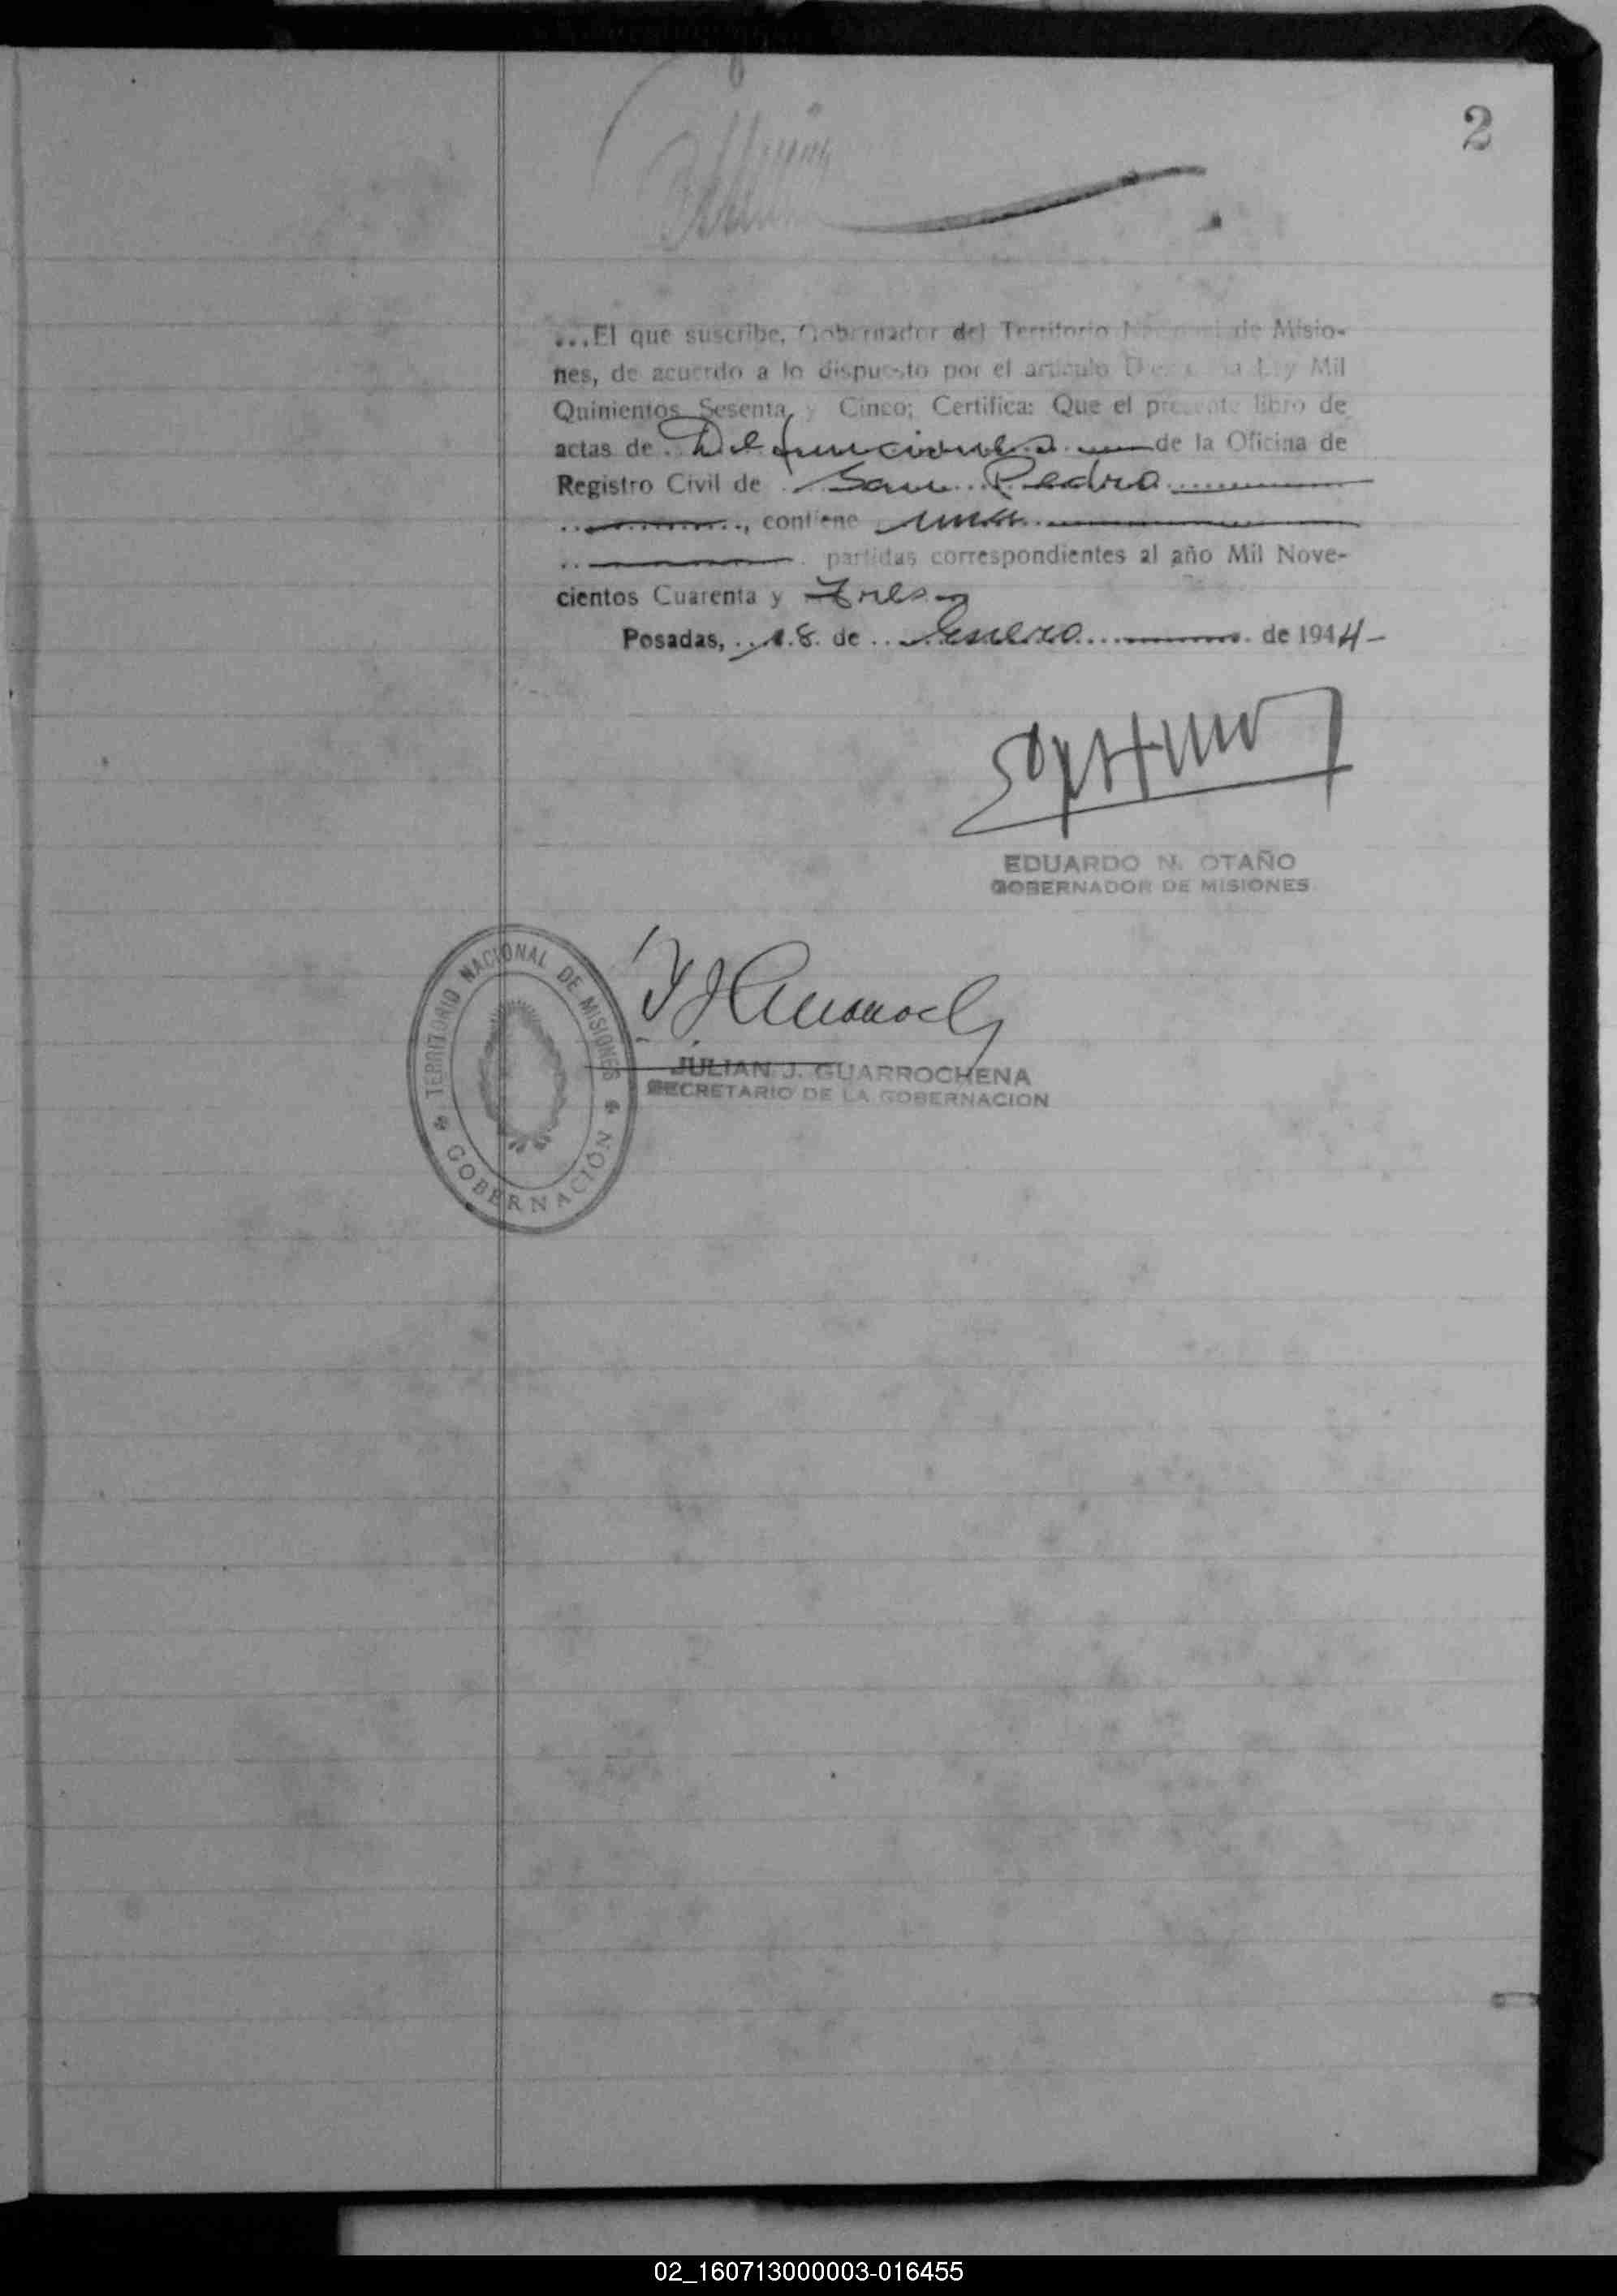 2
...El que suscribe, Gobernador del Territorio Nacional de Misio-
nes, de acuerdo a lo dispuesto por el artículo la Ley Mil
Quinientos Sesenta y Cinco; Certifica: Que el presente libro de
actas de Defunciones de la Oficina de
Registro Civil de San Pedro
, contiene una
partidas correspondientes al año Mil Nove-
cientos Cuarenta y Tres
Posadas, 18 de Enero de 1944-
EDUARDO N. OTAÑO
GOBERNADOR DE MISIONES
TERRITORIO NACIONAL DE MISIONES
GOBERNACIÓN
JULIAN J. GUARROCHENA
SECRETARIO DE LA GOBERNACION
02_160713000003-016455